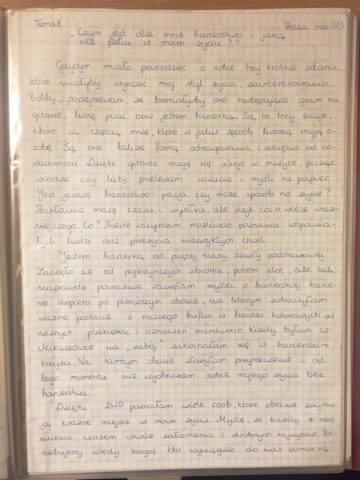 Temat: Praca na HS
"Czym jest dla mnie harcerstwo i jaką
rolę pełni w moim życiu?"
Gdybym miała powiedzieć o sobie trzy krótkie zdania
które miałyby wyrazić mój styl życia, zainteresowania
hobby, podejrzewam, że brzmiałyby one następująco: gram na
gitarze, lubię pisać oraz jestem harcerką. Są to trzy pasje,
które są częścią mnie, które w jakiś sposób tworzą moją o-
sobę. Są one także formą odreagowania i odcięcia od co-
dzienności. Dzięki gitarze mogę się ukryć w muzyce, pisząc
wiersze czy listy przelewam uczucia i myśli na papier.
Jest jeszcze harcerstwo - pasja czy może sposób na życie?
Pochłania masę czasu i wysiłku, ale daje coś o wiele waż-
niejszego. Co? Przede wszystkim możliwość poznania wspania-
łych ludzi oraz przeżycia niezwykłych chwil.
Jestem harcerką od piątej klasy szkoły podstawowej.
Zaczęło się od pojedynczych zbiórek, potem zlot, ale tak
naprawdę poważnie zaczęłam myśleć o harcerskiej karie-
rze dopiero po pierwszym obozie, na którym zobaczyłam
ważne postacie z naszego hufca w bardzo kolorowych od
różnych plakietek i oznaczeń mundurach. Kiedy byłam w
zakochałam się w harcerskim
kręgu. Na tamtym obozie złożyłam przyrzeczenie i od
tego momentu nie wyobrażam sobie mojego życia bez
harcerstwa.
Dzięki ZHP poznałam wiele osób, które obecnie zajmu-
ją ważne miejsce w moim życiu. Myślę, że każdy z nas
miewa czasem chwile załamania i drobnych kryzysów. Po-
trzebujemy wtedy kogoś kto wyciągnie do nas pomocną